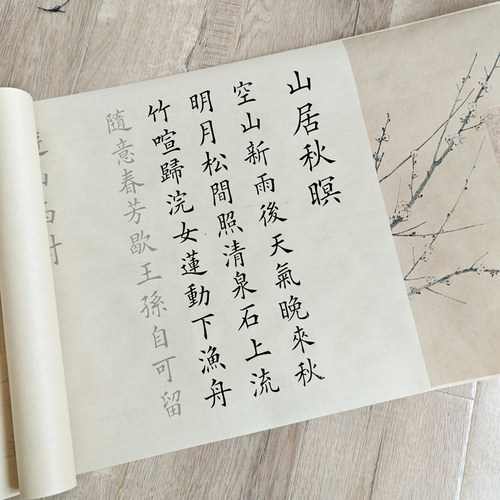 山居秋暝
空山新雨後天氣晚來秋
明月松間照清泉石上流
竹喧歸浣女蓮動下漁舟
隨意春芳歇王孫自可留